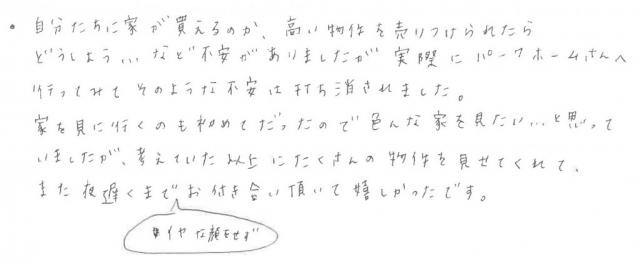 • 自分たちに家が買えるのか、高い物件を売りつけられたら
どうしよう... など不安がありましたが 実際に パークホームさんへ
行ってみて そのような不安は打ち消されました。
家を見に行くのも初めてだったので 色んな家を見たい...と思って
いましたが、考えていた以上にたくさんの物件を見せてくれて、
また夜遅くまでお付き合い頂いて嬉しかったです。
イヤな顔をせず